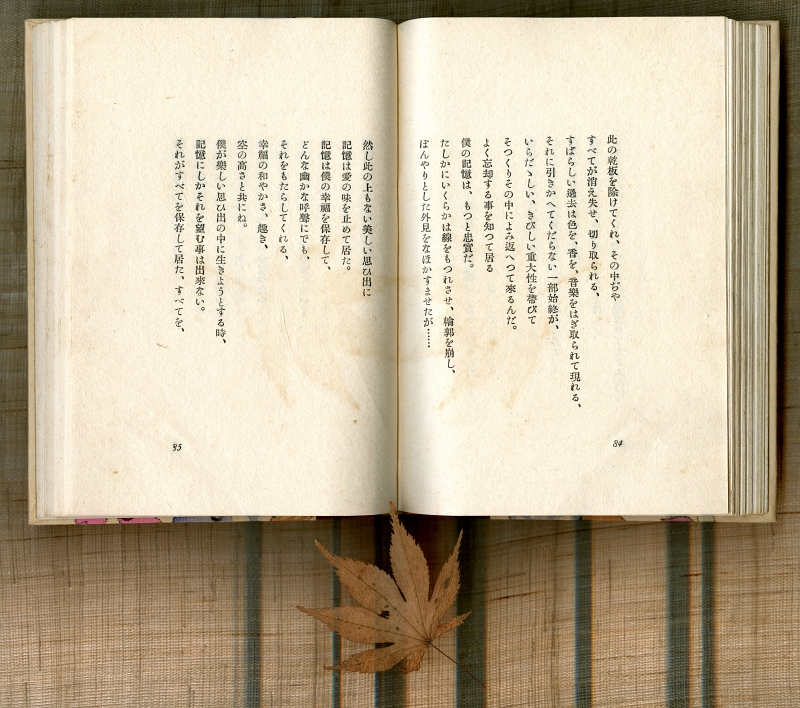 此の乾板を除けてくれ、その中ぢや
すべてが消え失せ、切り取られる、
すばらしい過去は色を、香を、音樂をはぎ取られて現れる、
それに引きかへてくだらない一部始終が、
いらだゝしい、きびしい重大性を帶びて
そつくりその中によみ返へつて來るんだ。
よく忘却する事を知つて居る
僕の記憶は、もつと忠實だ。
たしかにいくらかは線をもつれさせ、輪郭を崩し、
ぼんやりとした外見をなほかすませたが……
84
然し此の上もない美しい思ひ出に
記憶は愛の味を止めて居た。
記憶は僕の幸福を保存して、
どんな幽かな呼聲にでも、
それをもたらしてくれる、
幸福の和やかさ、趣き、
空の高さと共にね。
僕が樂しい思ひ出の中に生きようとする時、
記憶にしかそれを望む事は出來ない。
それがすべてを保存して居た、すべてを、
85